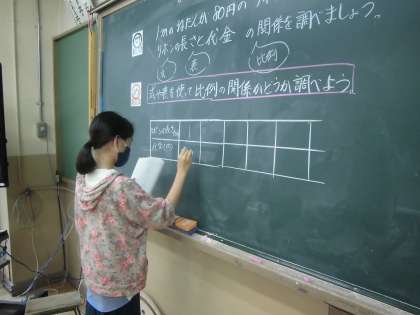 1mのねだんが80円の
リボンの長さと代金の関係を調べましょう。
式 表 比例
式や表を使って比例の関係かどうか調べよう。
リボンの長さ 1
代金(円)